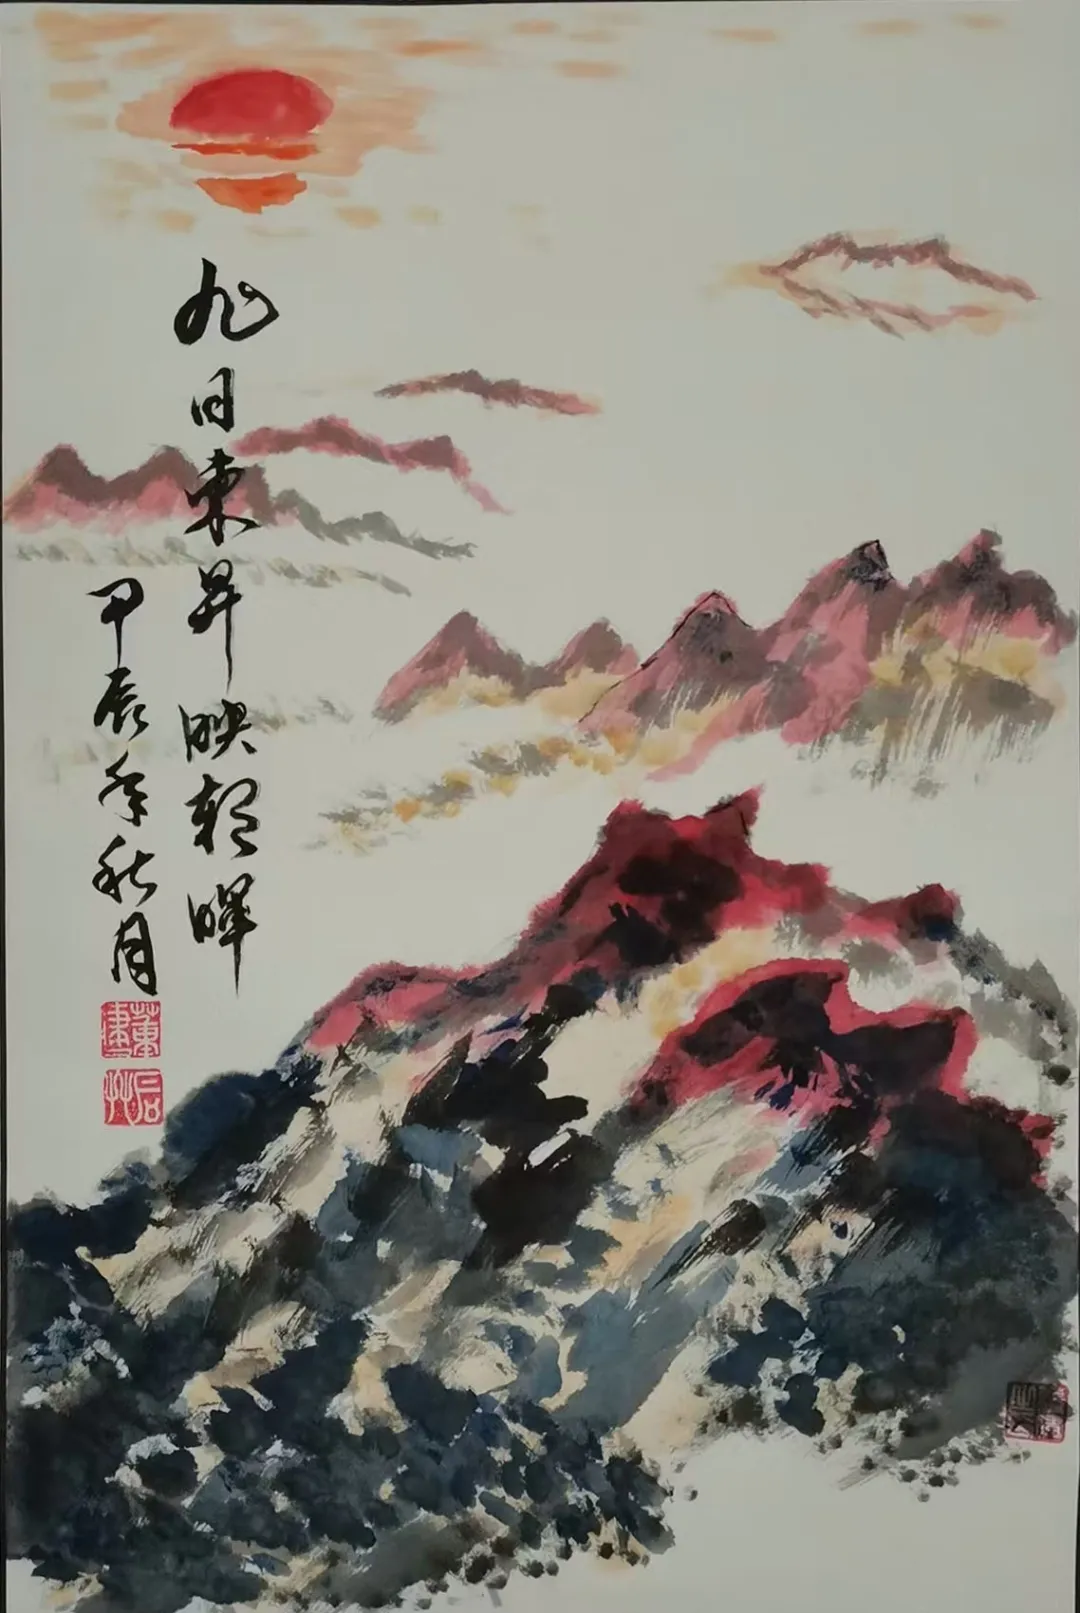 旭日東昇映朝暉
甲辰年秋月